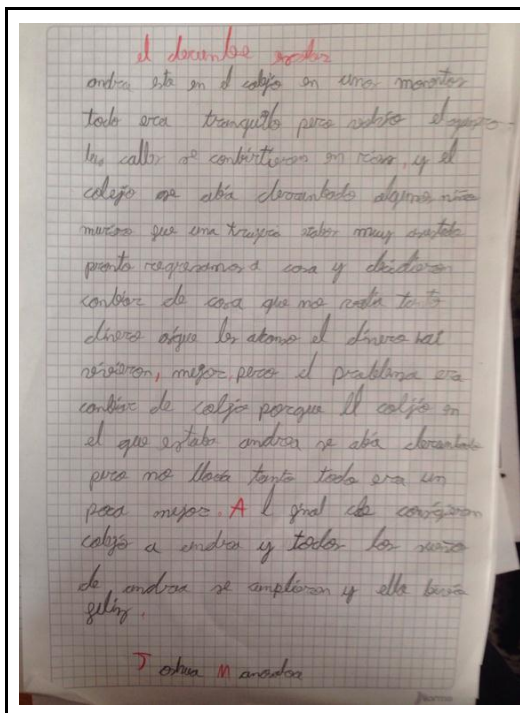 el derrumbe
andrea esta en el colejo en unos momentos
todo era tranquilo pero vadrio el
las calles se conbirtieron en rios, y el
colejo se abia derrunbado algunos niño
que una estaba muy asustada
pronto regresamos a casa y decidieron
conbiar de casa que no valia tanto
dinero asique les alcanso el dinero hai
vivieron, mejor, pero el problema era
conbiar de colejo porque ll colejo en
el que estaba andrea se abia derrunbado
pero no llovia tanto todo era un
poco mejor. A l final de consigieron
colejo a andrea y todos los sueño
de andrea se cunplieron y ella bivia
feliz.
Joshua M
Norma